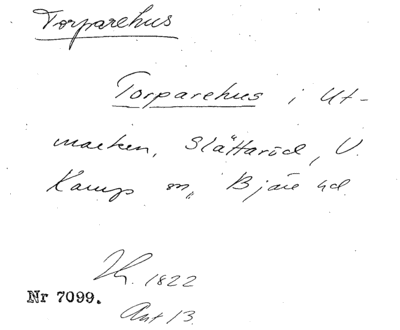 Torparehus
Torparehus i Ut-
marken, Slättaröd, V.
Karup sn, Bjäre hd.
1822
Nr 7099.
Ant 13.